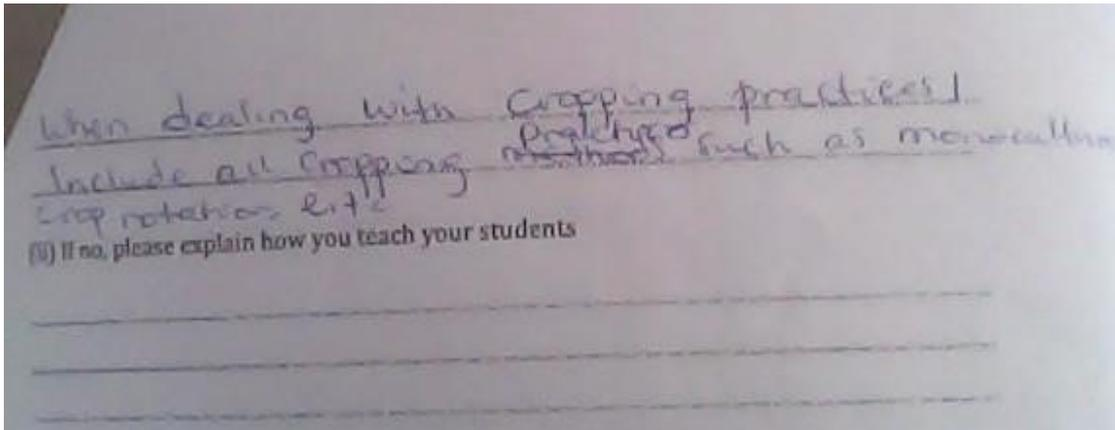 When dealing with Cropping practices I
Include all Cropping practices such as monocultur
crop rotation e.t.c
(ii) If no, please explain how you teach your students